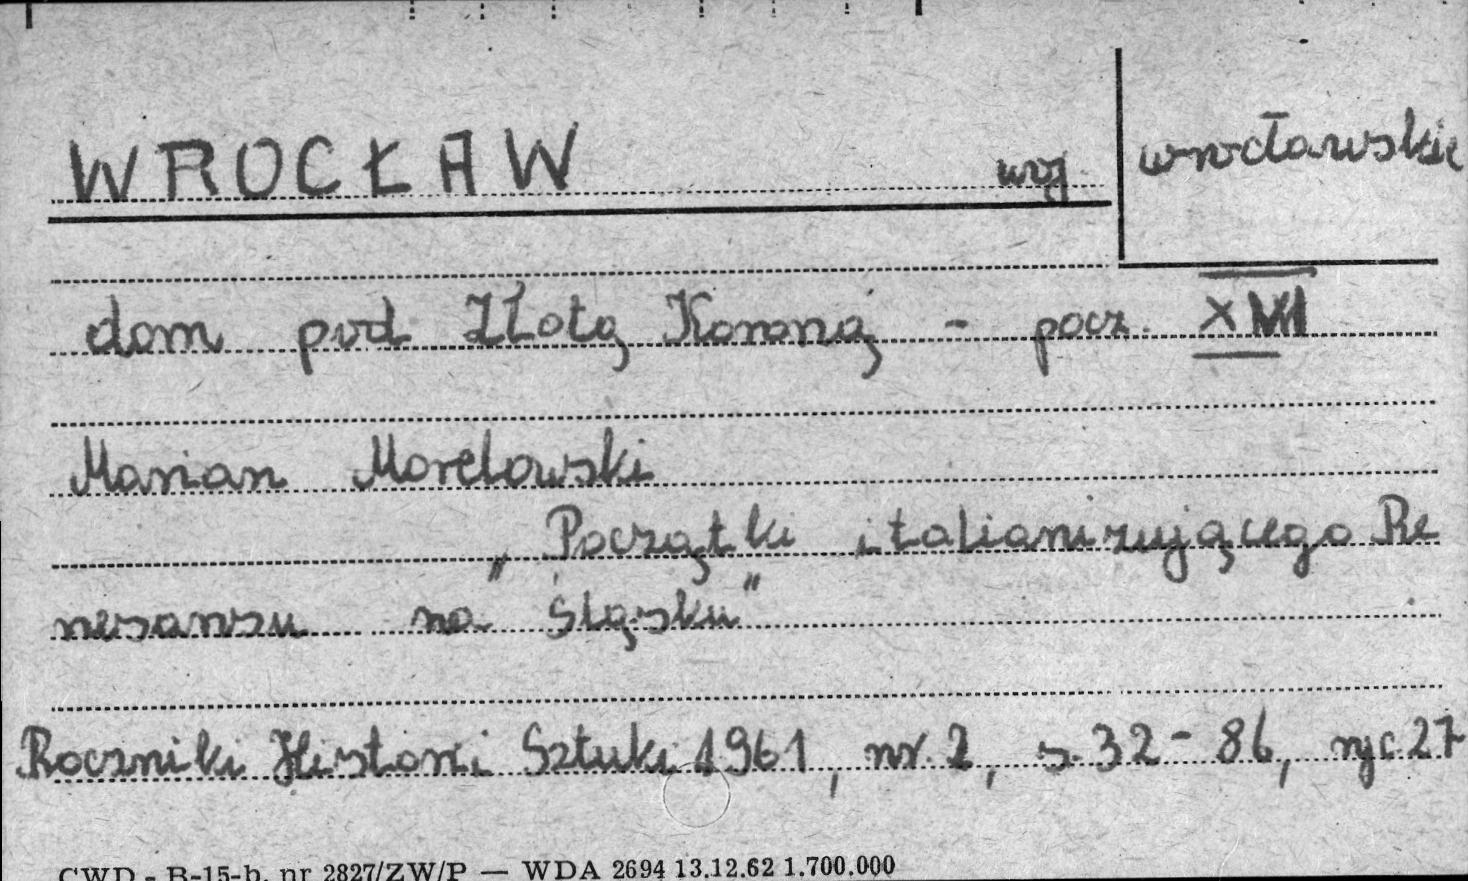 WROCŁAW woj. wrocławskie
dom pod Złotą Koroną - pocz.
Marian Morelowski
„Początki italianizującego Re
nesansu na Śląsku"
Roczniki Historii Sztuki 1961, nr. 2, s. 32-86, ryc. 27
CWD - B-15-b. nr 2827/ZW/P — WDA 2694 13.12.62 1.700.000